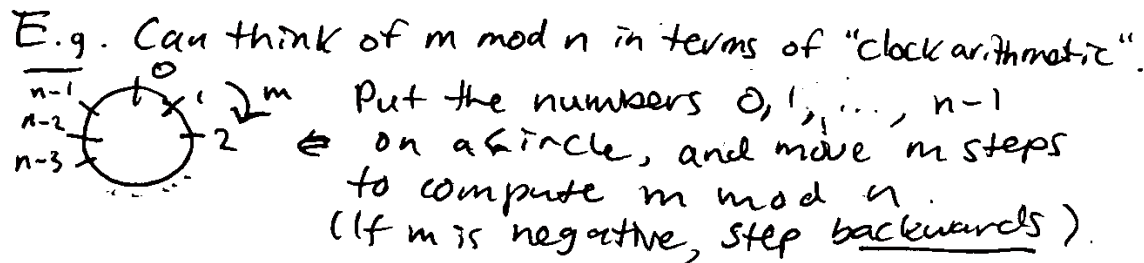 E.g. Can think of m mod n in terms of "clock arithmetic".
0
n-1 1 m Put the numbers 0, 1, ..., n-1
n-2 2 ⇐ on a circle, and move m steps
n-3 to compute m mod n.
(If m is negative, step backwards).